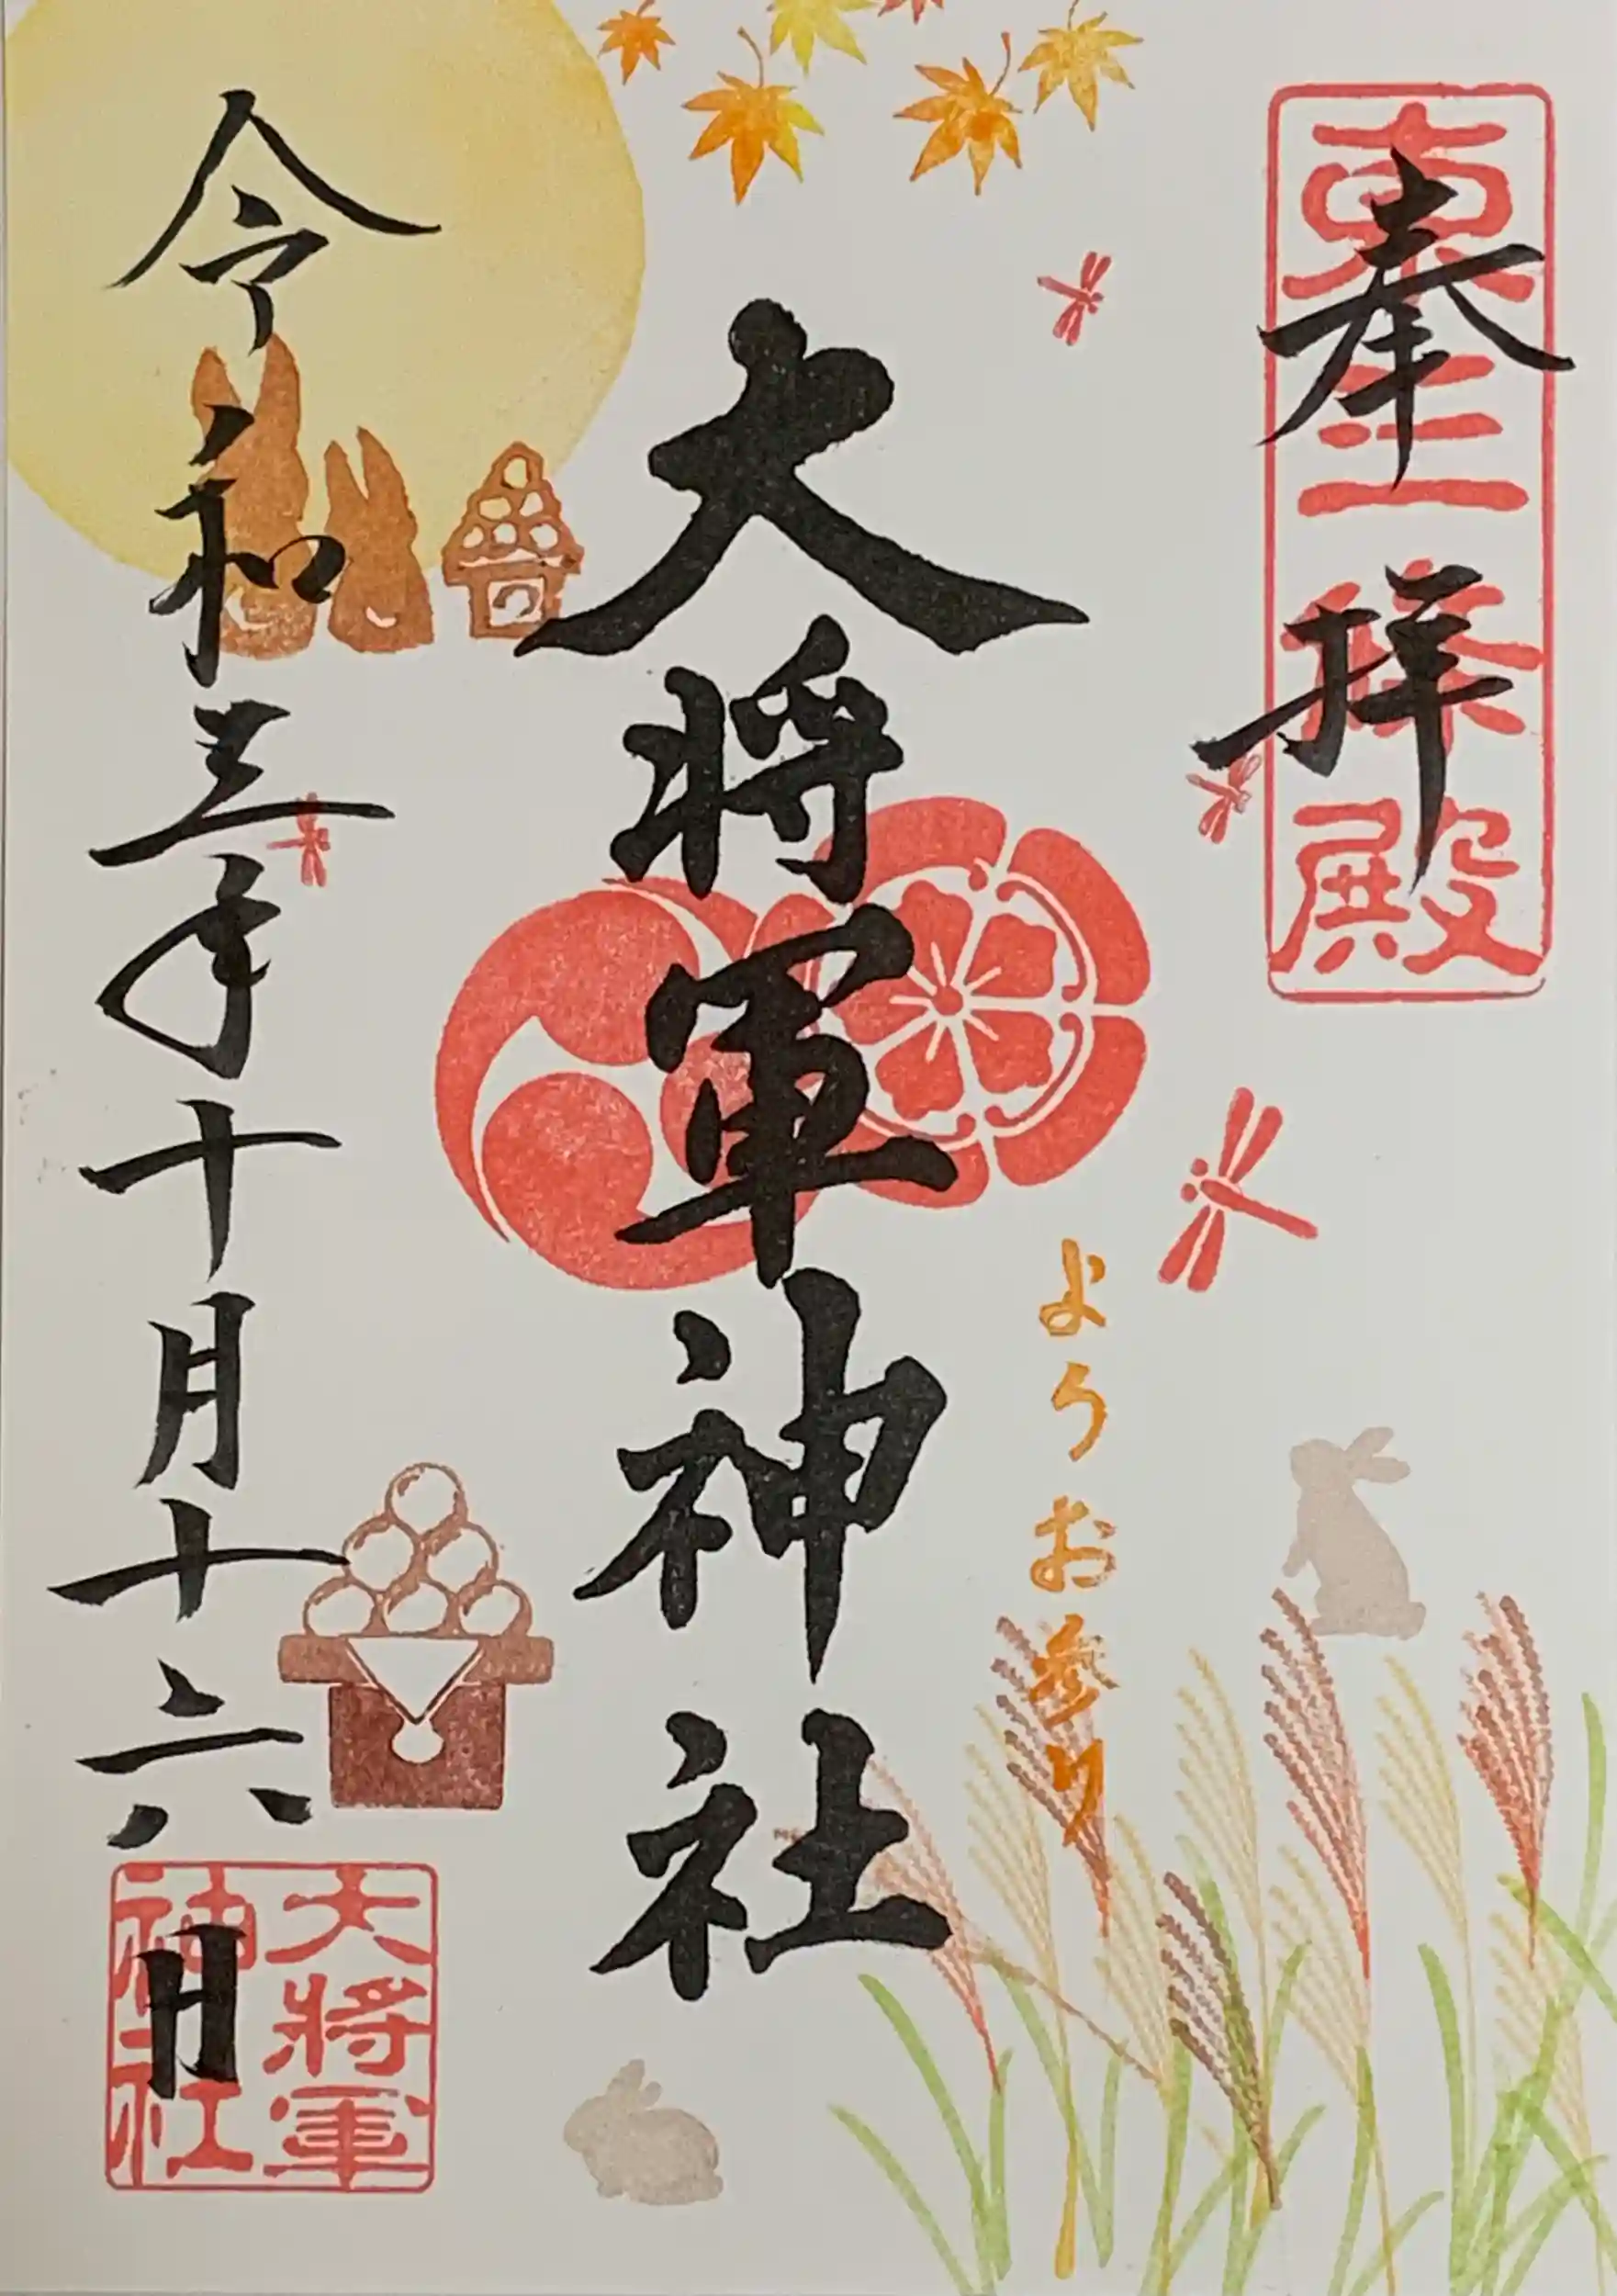 奉拝
東三條殿
大将軍神社
ようお参り
令和三年十月十六日
大將軍
神社